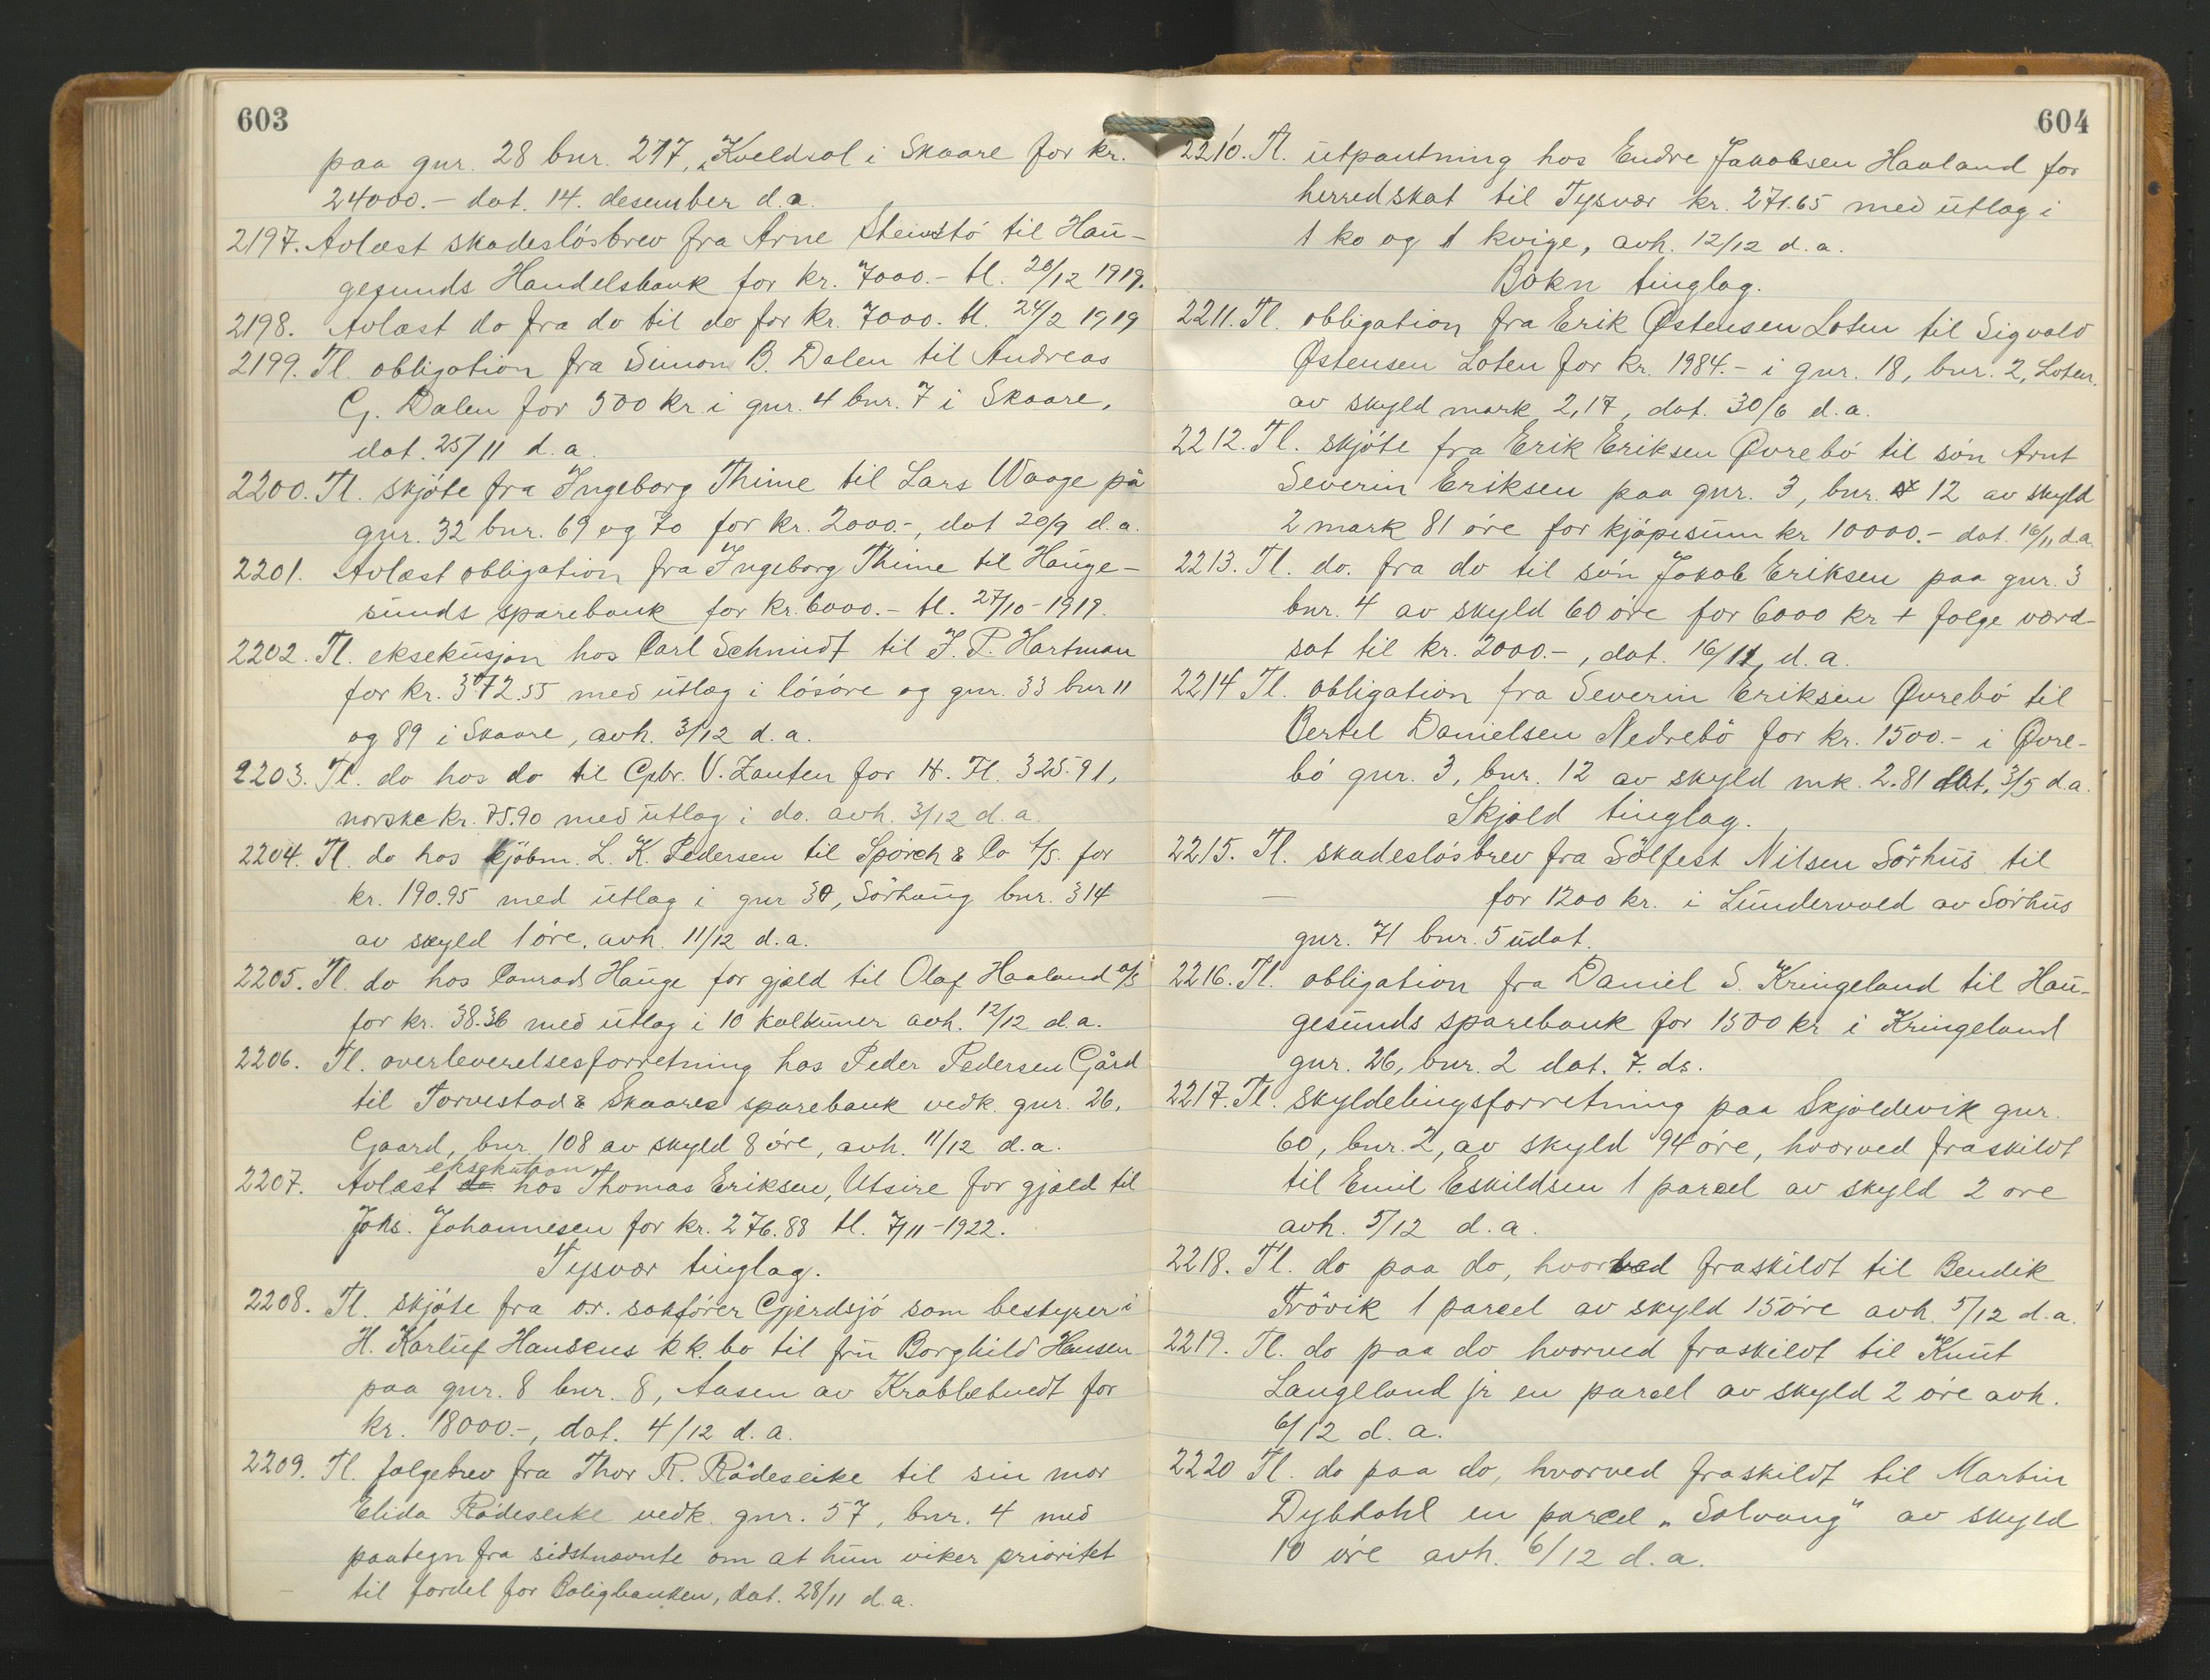 603
paa gnr. 28 bnr. 217, „Kveldsol i Skaare for kr.
24000.– dat. 14. desember d.a.
2197. Avlæst skadesløsbrev fra Arne Stensto til Hau-
gesunds Handelsbank for kr. 7000.– tl. 20/12 1919.
2198. Avlæst do fra do til do for kr. 7000. tl. 24/2 1919
2199. Tl. obligation fra Simon B. Dalen til Andreas
G. Dalen for 500 kr i gnr. 4 bnr. 7 i Skaare,
dat. 25/11 d.a.
2200. Tl. skjøte fra Ingeborg Thime til Lars Waage på
gnr. 32 bnr. 69 og 70 for kr. 2000.–, dat 20/9 d.a.
2201. Avlæst obligation fra Ingeborg Thime til Hauge-
sunds sparebank for kr. 6000.– tl. 27/10–1919.
2202. Tl. eksekusjon hos Carl Schmidt til J. P. Hartman
for kr. 3072.55 med utlæg i løsøre og gnr. 33 bnr 11
og 89 i Skaare, avh. 3/12 d.a.
2203. Tl. do hos do til Gebr. V. Zanten for H. Fl. 325.91,
norske kr. 75.90 med utlæg i do. avh. 3/12 d.a.
2204. Tl. do hos kjøbm. L. K. Pedersen til Sporch & Co A/S. for
kr. 190.95 med utlæg i gnr 30, Sørhaug bnr. 314
av skyld 1 øre, avh. 11/12 d.a.
2205. Tl. do hos Conrad Hauge for gjæld til Olaf Haaland a/s
for kr. 38.36 med utlæg i 10 kalkuner avh. 12/12 d.a.
2206. Tl. overleverelsesforretning hos Peder Pedersen Gård
til Torvestad & Skaares sparebank vedk. gnr. 26,
Gaard, bnr. 108 av skyld 8 øre, avh. 11/12 d.a.
eksekution
2207. Avlæst do hos Thomas Eriksen, Utsire for gjæld til
Johs. Johannesen for kr. 276.88 tl. 7/11–1922.
Tysvær tinglag.
2208. Tl. skjøte fra o.r. sakfører Gjerdsjø som bestyrer i
H. Karluf Hansens kk. bo til fru Borghild Hansen
paa gnr. 8 bnr. 8, Aasen av Krabbetvedt for
kr. 18000.–, dat. 4/12 d.a.
2209. Tl. følgebrev fra Thor R. Rødeseike til sin mor
Elida Rødeseike vedk. gnr. 57, bnr. 4 med
paategn fra sidstnævnte om at hun viker prioritet
til fordel for Boligbanken, dat. 28/11 d.a.
604
2210. Tl. utpantning hos Endre Jakobsen Haaland for
herredskat til Tysvær kr. 271.65 med utlæg i
1 ko og 1 kvige, avh. 12/12 d.a.
Bokn tinglag.
2211. Tl. obligation fra Erik Østensen Loten til Sigvald
Østensen Loten for kr. 1984.– i gnr. 18, bnr. 2, Loten,
av skyld mark 2,17, dat. 30/6 d.a.
2212. Tl. skjøte fra Erik Eriksen Øvrebø til søn Arnt
Severin Eriksen paa gnr. 3, bnr. 12 av skyld
2 mark 81 øre for kjøpesum kr 10000.– dat. 16/11 d.a.
2213. Tl. do. fra do til søn Jakob Eriksen paa gnr. 3
bnr. 4 av skyld 60 øre for 6000 kr + følge værd-
sat til kr. 2000.–, dat. 16/11, d.a.
2214 Tl. obligation fra Severin Eriksen Øvrebø til
Bertel Danielsen Nedrebö for kr. 1500.– i Øvre-
bø gnr. 3, bnr. 12 av skyld mk. 2.81 dat. 3/5 d.a.
Skjold tinglag.
2215. Tl. skadesløsbrev fra Sølfest Nilsen Sørhus til
— for 1200 kr. i Lundervold av Sørhus
gnr. 71 bnr. 5 udat.
2216. Tl. obligation fra Daniel S. Kringeland til Hau-
gesunds sparebank for 1500 kr i Kringeland
gnr. 26, bnr. 2 dat. 7. ds.
2217. Tl. skyldelingsforretning paa Skjoldevik gnr.
60, bnr. 2, av skyld 94 øre, hvorved fraskildt
til Emil Eskildsen 1 parcel av skyld 2 øre
avh. 5/12 d.a.
2218. Tl. do paa do, hvorved fraskildt til Bendik
Trövik 1 parcel av skyld 15 øre avh. 5/12 d.a.
2219. Tl. do paa do hvorved fraskildt til Knut
Langeland jr en parcel av skyld 2 øre avh.
6/12 d.a.
2220 Tl. do paa do, hvorved fraskildt til Martin
Dybdahl en parcel „Solvang" av skyld
10 øre avh. 6/12 d.a.